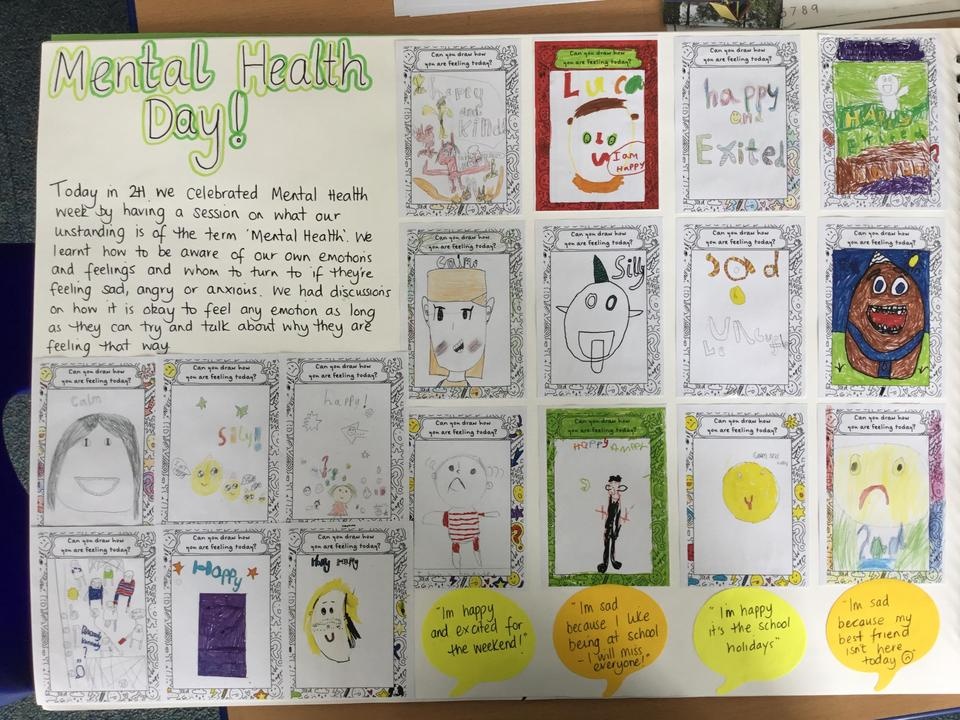 Mental Health
Day!
Today in 2H we celebrated Mental Health
week by having a session on what our
unstanding is of the term 'Mental Health'. We
learnt how to be aware of our own emotions
and feelings and whom to turn to if they're
feeling sad, angry or anxious. We had discussions
on how it is okay to feel any emotion as long
as they can try and talk about why they are
feeling that way
Can you draw how
you are feeling today?
happy
and
kind
Can you draw how
you are feeling today?
Luca
I am
HAPPY
Can you draw how
you are feeling today?
happy
and
Exited
Can you draw how
you are feeling today?
Calm
Can you draw how
you are feeling today?
Silly
Can you draw how
you are feeling today?
Can you draw how
you are feeling today?
Calm
Can you draw how
you are feeling today?
Silly!
Can you draw how
you are feeling today?
happy!
Can you draw how
you are feeling today?
Can you draw how
you are feeling today?
Happy
Can you draw how
you are feeling today?
Can you draw how
you are feeling today?
Can you draw how
you are feeling today?
HAPPY
Can you draw how
you are feeling today?
Can you draw how
you are feeling today?
Happy
"Im happy
and excited for
the weekend!"
"Im sad
because I like
being at school
- I will miss
everyone!"
"I'm happy
it's the school
holidays"
"Im sad
because my
best friend
isn't here
today